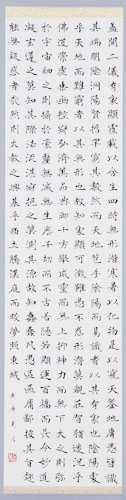 蓋聞二儀有象顯覆載以含生四時無形潛寒暑以化物是以窺天鑒地庸愚皆識
其端明陰洞陽賢哲罕窮其數然而天地苞乎陰陽而易識者以其有象也陰陽處
乎天地而難窮者以其無形也故知象顯可徵雖愚不惑形潛莫覩在智猶迷況乎
佛道崇虛乘幽控寂弘濟萬品典御十方舉威靈而無上抑神力而無下大之則彌
於宇宙細之則攝於毫釐無滅無生歷千劫而不古若隱若顯運百福而長今妙道
凝玄遵之莫知其際法流湛寂挹之莫測其源故知蠢蠢凡愚區區庸鄙投其旨趣
能無疑惑者哉然則大教之興基乎西土騰漢庭而皎夢照東域